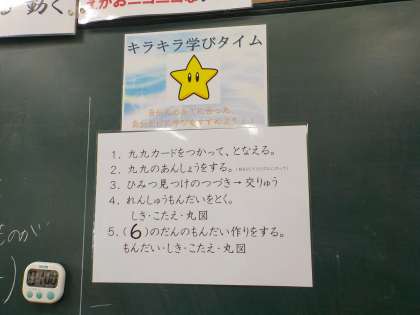 動く
えがおニコニコ
キラキラ学びタイム
1. 九九カードをつかって、となえる。
2. 九九のあんしょうをする。
3. ひみつ見つけのつづき→交りゅう
4. れんしゅうもんだいをとく。
しき・こたえ・丸図
5. (6)のだんのもんだい作りをする。
もんだい・しき・こたえ・丸図